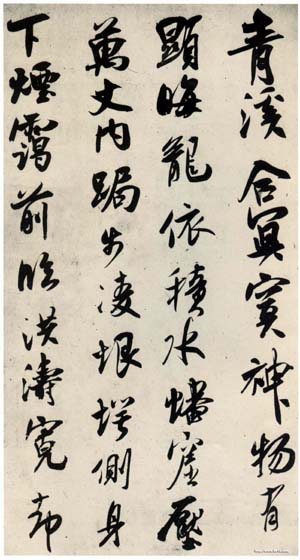 青溪合冥寞神物有
顯晦龍依積水蟠窟壓
萬丈內跼步凌垠堮側身
下煙靄前臨洪濤寬却